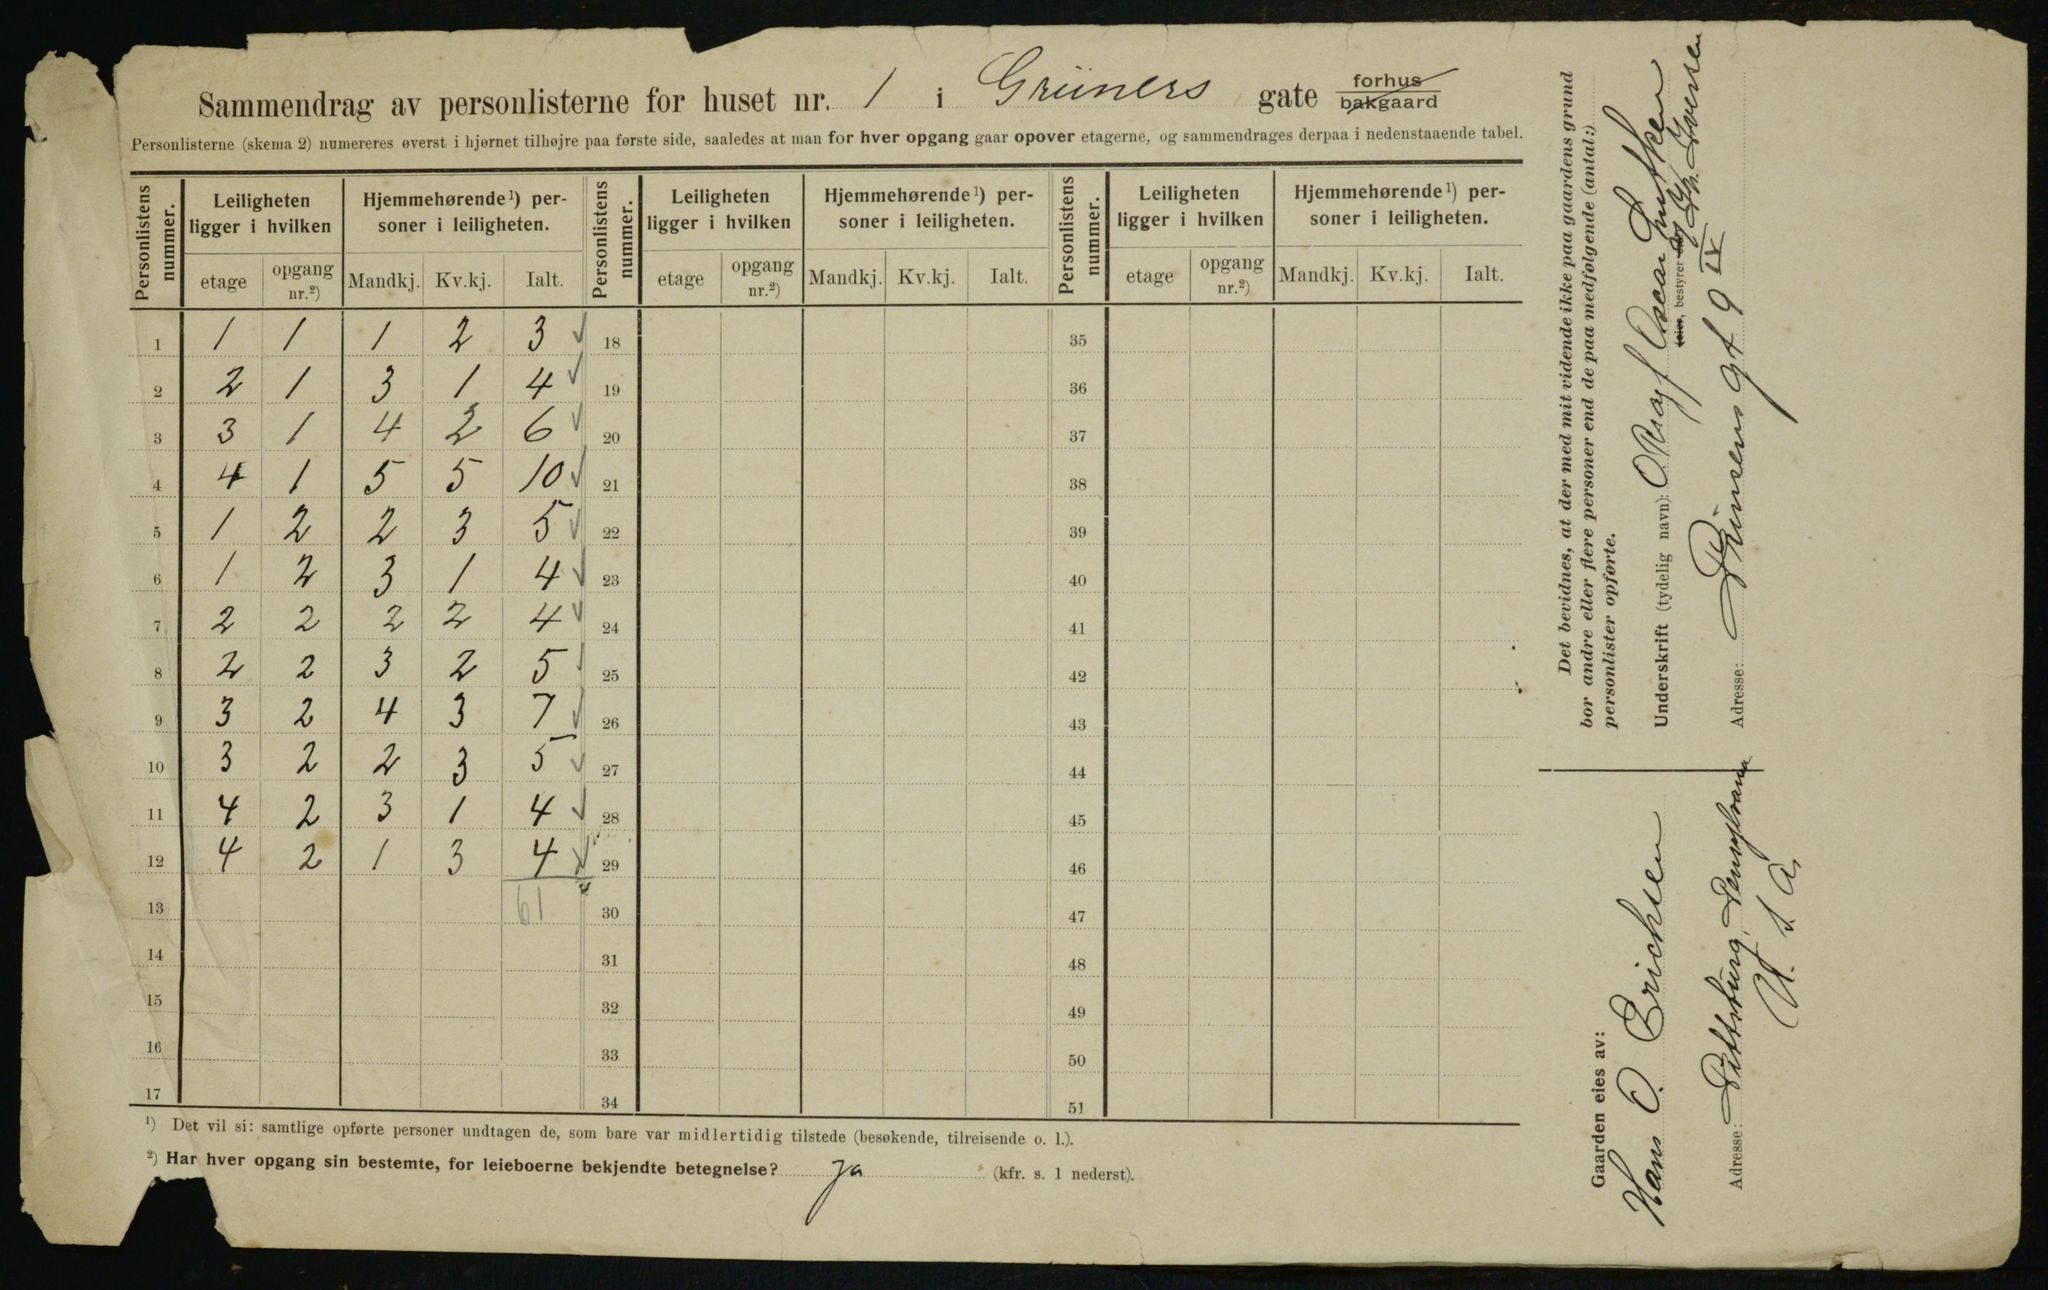 Sammendrag av personlisterne for huset nr. 1 i Grüners gate forhus bakgaard
Personlisterne (skema 2) numereres øverst i hjørnet tilhøjre paa første side, saaledes at man for hver opgang gaar opover etagerne, og sammendrages derpaa i nedenstaaende tabel.
Personlistens nummer. Leiligheten ligger i hvilken Hjemmehørende¹) personer i leiligheten. Personlistens nummer. Leiligheten ligger i hvilken Hjemmehørende¹) personer i leiligheten. Personlistens nummer. Leiligheten ligger i hvilken Hjemmehørende¹) personer i leiligheten.
etage opgang nr.²) Mandkj. Kv.kj. Ialt. etage opgang nr.²) Mandkj. Kv.kj. Ialt. etage opgang nr.²) Mandkj. Kv.kj. Ialt.
1 1 1 1 2 3 ✓ 18 35
2 2 1 3 1 4 ✓ 19 36
3 3 1 4 2 6 ✓ 20 37
4 4 1 5 5 10 ✓ 21 38
5 1 2 2 3 5 ✓ 22 39
6 1 2 3 1 4 ✓ 23 40
7 2 2 2 2 4 ✓ 24 41
8 2 2 3 2 5 ✓ 25 42
9 3 2 4 3 7 ✓ 26 43
10 3 2 2 3 5 ✓ 27 44
11 4 2 3 1 4 ✓ 28 45
12 4 2 1 3 4 ✓ 29 46
13 61 30 47
14 31 48
15 32 49
16 33 50
17 34 51
¹) Det vil si: samtlige opførte personer undtagen de, som bare var midlertidig tilstede (besøkende, tilreisende o. l.).
²) Har hver opgang sin bestemte, for leieboerne bekjendte betegnelse? ja (kfr. s. 1 nederst).
Det bevidnes, at der med mit vidende ikke paa gaardens grund
bor andre eller flere personer end de paa medfølgende (antal:)
personlister opførte.
Underskrift (tydelig navn): Oscar
eier, bestyrer Iversen
Adresse: Prinsens gt 9 IV
Gaarden eies av:
Hans O. Erichsen
Adresse: Pittsburg, Pensylvania
U. S. A.